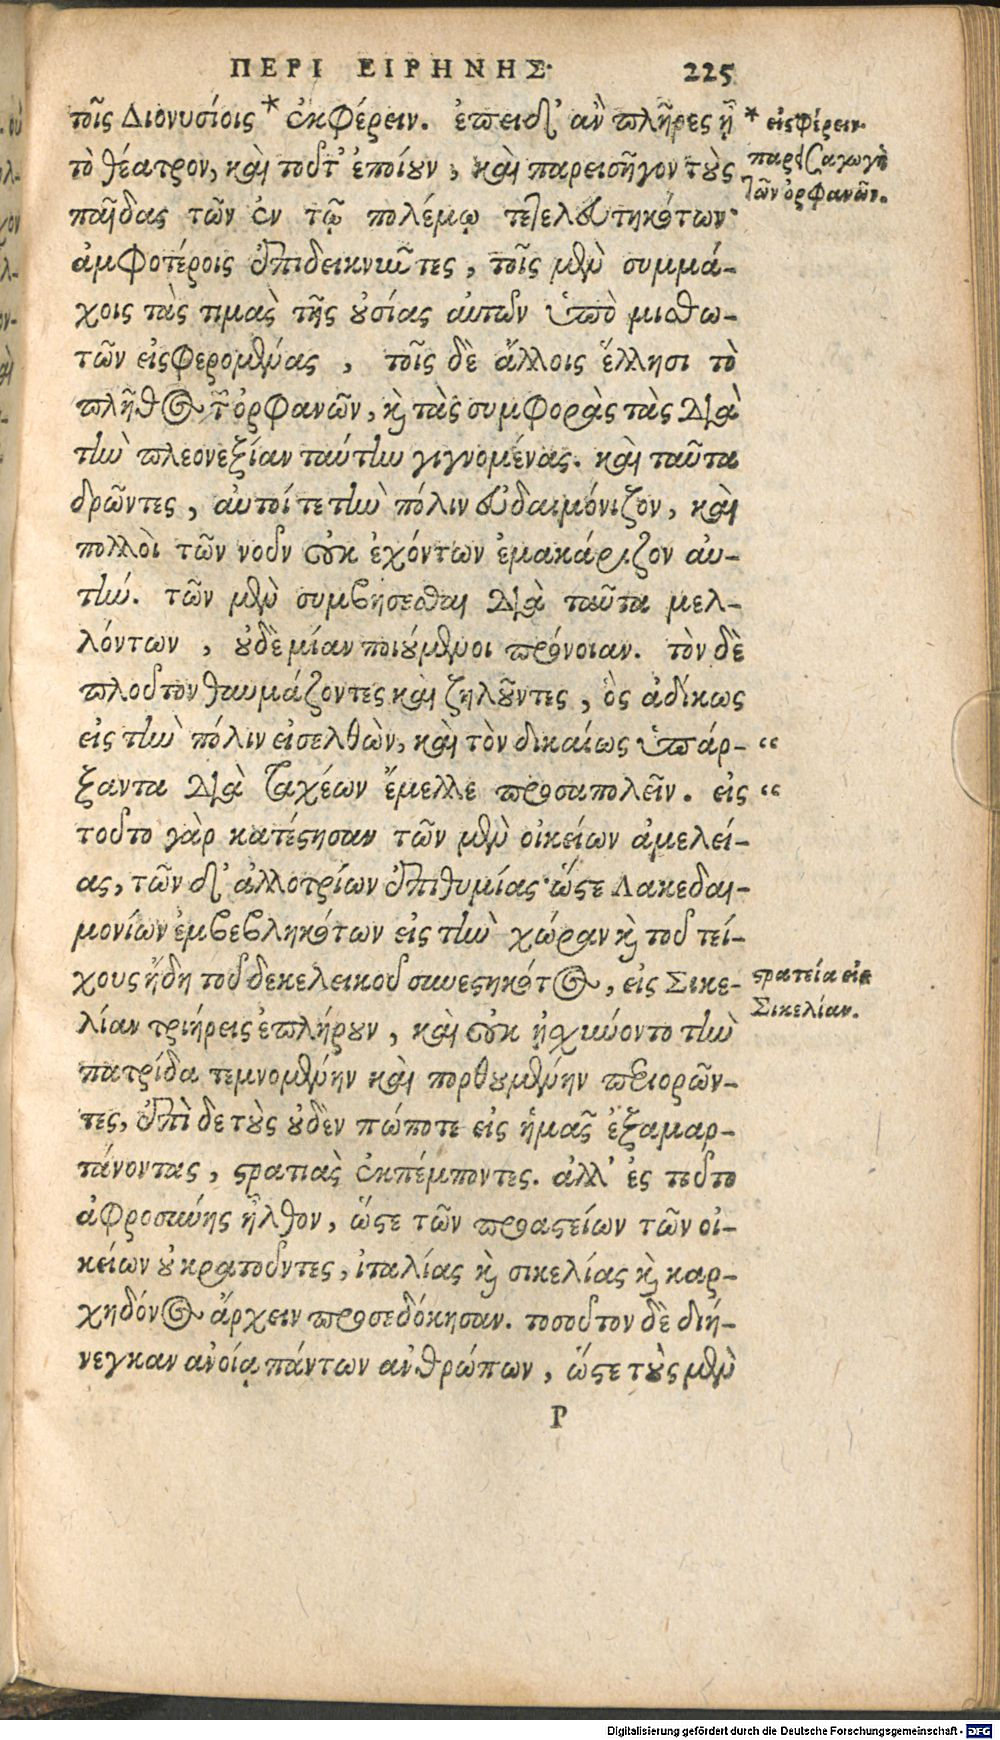 ΠΕΡΙ ΕΙΡΗΝΗΣ· 225
τοῖς Διονυσίοις * ἐκφέρειν. ἐπειδ' ἀν πλῆρες ᾖ
τὸ θέατρον, καὶ τοῦτ' ἐποίουν, καὶ παρεισῆγον τοὺς
παῖδας τῶν ἐν τῷ πολέμῳ τετελευτηκότων·
ἀμφοτέροις ἐπιδεικνῦντες, τοῖς μὲν συμμά-
χοις τὰς τιμὰς τῆς οὐσίας αὐτῶν ὑπὸ μισθω-
τῶν εἰσφερομένας, τοῖς δὲ ἄλλοις ἕλλησι τὸ
πλῆθος τῶν ὀρφανῶν, καὶ τὰς συμφορὰς τὰς διὰ
τὴν πλεονεξίαν ταύτην γιγνομένας. καὶ ταῦτα
δρῶντες, αὐτοί τε τὴν πόλιν εὐδαιμόνιζον, καὶ
πολλοὶ τῶν νοῦν οὐκ ἐχόντων ἐμακάριζον αὐ-
τήν. τῶν μὲν συμβήσεσθαι διὰ ταῦτα μελ-
λόντων, οὐδὲ μίαν ποιούμενοι πρόνοιαν. τὸν δὲ
πλοῦτον θαυμάζοντες καὶ ζηλοῦντες, ὃς ἀδίκως
εἰς τὴν πόλιν εἰσελθὼν, καὶ τὸν δικαίως ὑπάρ- “
ξαντα διὰ ταχέων ἔμελλε προσαπολεῖν. εἰς “
τοῦτο γὰρ κατέστησαν τῶν μὲν οἰκείων ἀμελεί-
ας, τῶν δ' ἀλλοτρίων ἐπιθυμίας· ὥστε Λακεδαι-
μονίων ἐμβεβληκότων εἰς τὴν χώραν καὶ τοῦ τεί-
χους ἤδη τοῦ δεκελεικοῦ συνεστηκότος, εἰς Σικε-
λίαν τριήρεις ἐπλήρουν, καὶ οὐκ ᾐσχύνοντο τὴν
πατρίδα τεμνομένην καὶ πορθουμένην περιορῶν-
τες, ἐπὶ δὲ τοὺς οὐδὲν πώποτε εἰς ἡμᾶς ἐξαμαρ-
τάνοντας, στρατιὰς ἐκπέμποντες. ἀλλ' ἐς τοῦτο
ἀφροσύνης ἦλθον, ὥστε τῶν προαστείων τῶν οἰ-
κείων οὐ κρατοῦντες, ἰταλίας καὶ σικελίας καὶ καρ-
χηδόνος ἄρχειν προσεδόκησαν. τοσοῦτον δὲ διή-
νεγκαν ἀνοίᾳ πάντων ἀνθρώπων, ὥστε τοὺς μὲν
P
* εἰσφέρειν·
παρεισαγωγὴ
τῶν ὀρφανῶν.
στρατεία εἰς
Σικελίαν.
Digitalisierung gefördert durch die Deutsche Forschungsgemeinschaft - DFG